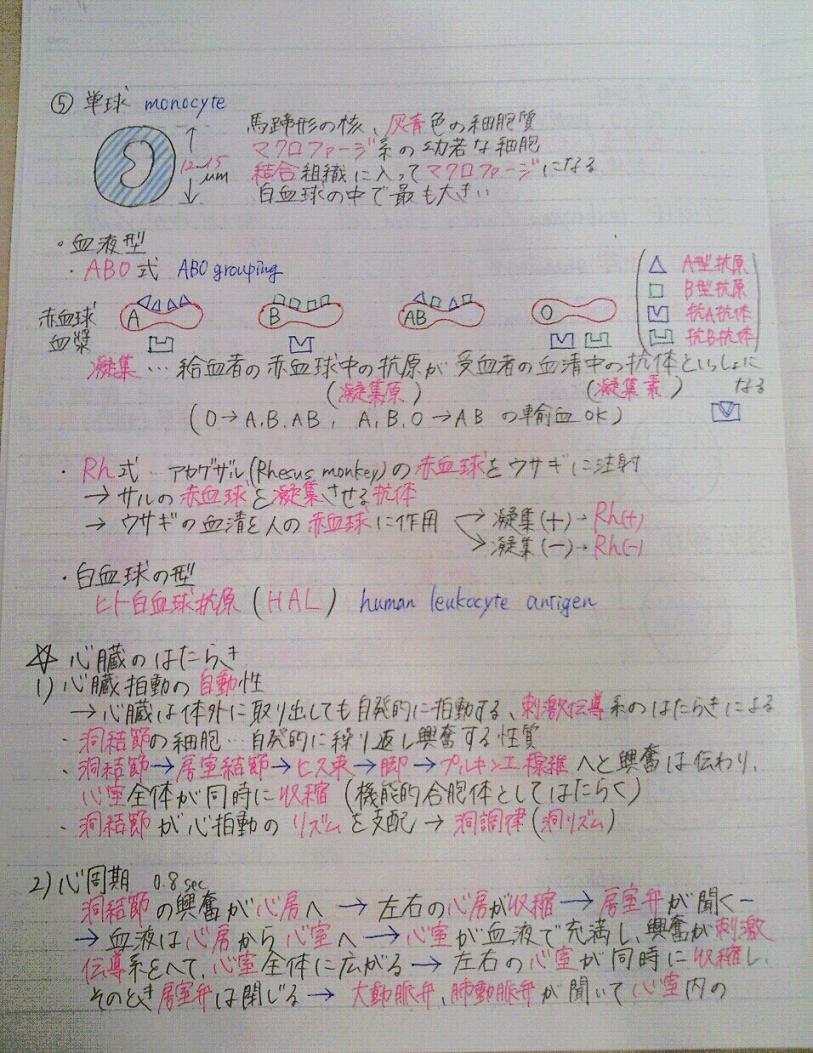 ⑤ 単球 monocyte
馬蹄形の核、灰青色の細胞質
マクロファージ系の幼若な細胞
12~15 μm
結合組織に入ってマクロファージになる
白血球の中で最も大きい
・血液型
・ABO式 ABO grouping
A型抗原
B型抗原
抗A抗体
抗B抗体
赤血球 A B AB O
血漿
凝集…給血者の赤血球中の抗原が受血者の血清中の抗体といっしょになる
(凝集原) (凝集素)
(O→A,B,AB, A,B,O→ABの輸血OK)
・Rh式…アカゲザル(Rhesus monkey)の赤血球をウサギに注射
→サルの赤血球を凝集させる抗体
→ウサギの血清を人の赤血球に作用 →凝集(+)→Rh(+)
→凝集(-)→Rh(-)
・白血球の型
ヒト白血球抗原(HAL) human leukocyte antigen
☆心臓のはたらき
1)心臓拍動の自動性
→心臓は体外に取り出しても自発的に拍動する、刺激伝導系のはたらきによる
・洞結節の細胞…自発的に繰り返し興奮する性質
・洞結節→房室結節→ヒス束→脚→プルキンエ線維へと興奮は伝わり、
心室全体が同時に収縮(機能的合胞体としてはたらく)
・洞結節が心拍動のリズムを支配→洞調律(洞リズム)
2)心周期 0.8sec
洞結節の興奮が心房へ→左右の心房が収縮→房室弁が開く
→血液は心房から心室へ→心室が血液で充満し、興奮が刺激
伝導系をへて、心室全体に広がる→左右の心室が同時に収縮し、
そのとき房室弁は閉じる→大動脈弁、肺動脈弁が開いて心室内の